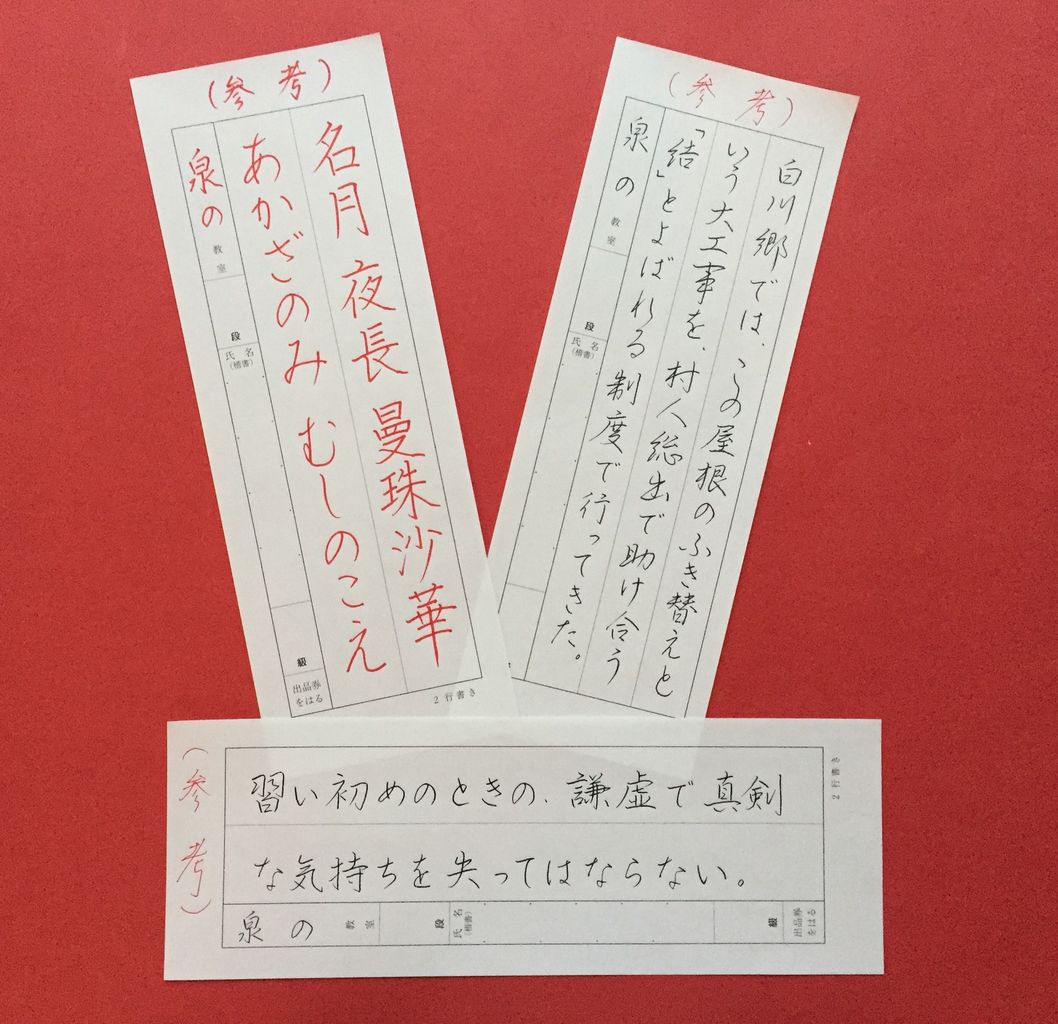 （参考）
名月 夜長 曼珠沙華
あかざのみ むしのこえ
泉の 教室
段
氏名
（楷書）
級
出品券
をはる
2行書き
（参考）
白川郷では、この屋根のふき替えと
いう大工事を、村人総出で助け合う
「結」とよばれる制度で行ってきた。
泉の 教室
段
氏名
（楷書）
（参考）
習い初めのときの、謙虚で真剣
な気持ちを失ってはならない。
泉の 教室
段
氏名
（楷書）
級
出品券
をはる
2行書き